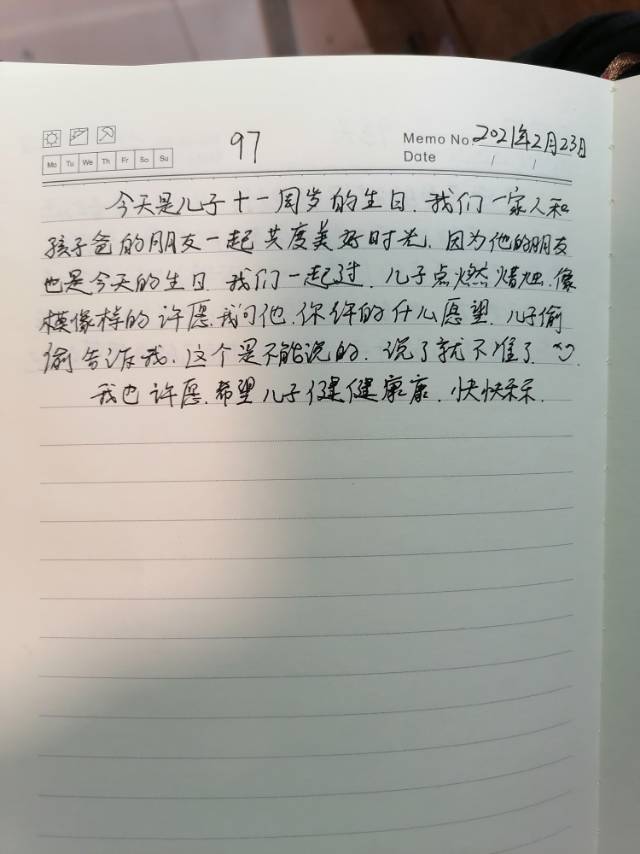 97
Memo No. 2021年2月23日
Mo Tu We Th Fr Sa Su
Date / /
今天是儿子十一周岁的生日.我们一家人和
孩子爸的朋友一起共度美好时光.因为他的朋友
也是今天的生日.我们一起过.儿子点燃蜡烛.像
模像样的许愿.我问他.你许的什么愿望.儿子偷
偷告诉我.这个是不能说的.说了就不准了
我也许愿.希望儿子健健康康.快快乐乐.